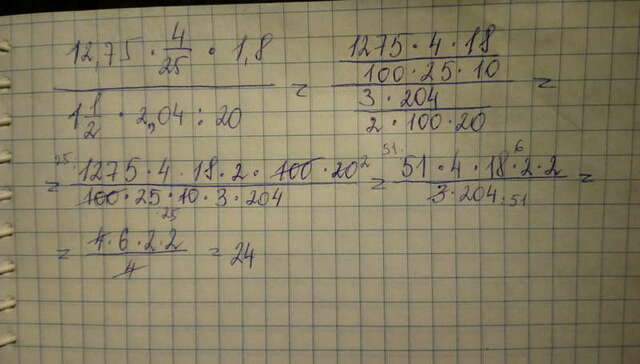 12,75 · 4/25 · 1,8 / 1 1/2 · 2,04 : 20 = 1275 · 4 · 18 / 100 · 25 · 10 / 3 · 204 / 2 · 100 · 20 =
= 25 1275 · 4 · 18 · 2 · 100 · 20 2 / 100 · 25 · 10 · 3 · 204 25 = 51 51 · 4 · 18 6 · 2 · 2 / 3 · 204 :51 =
= 4 · 6 · 2 · 2 / 4 = 24